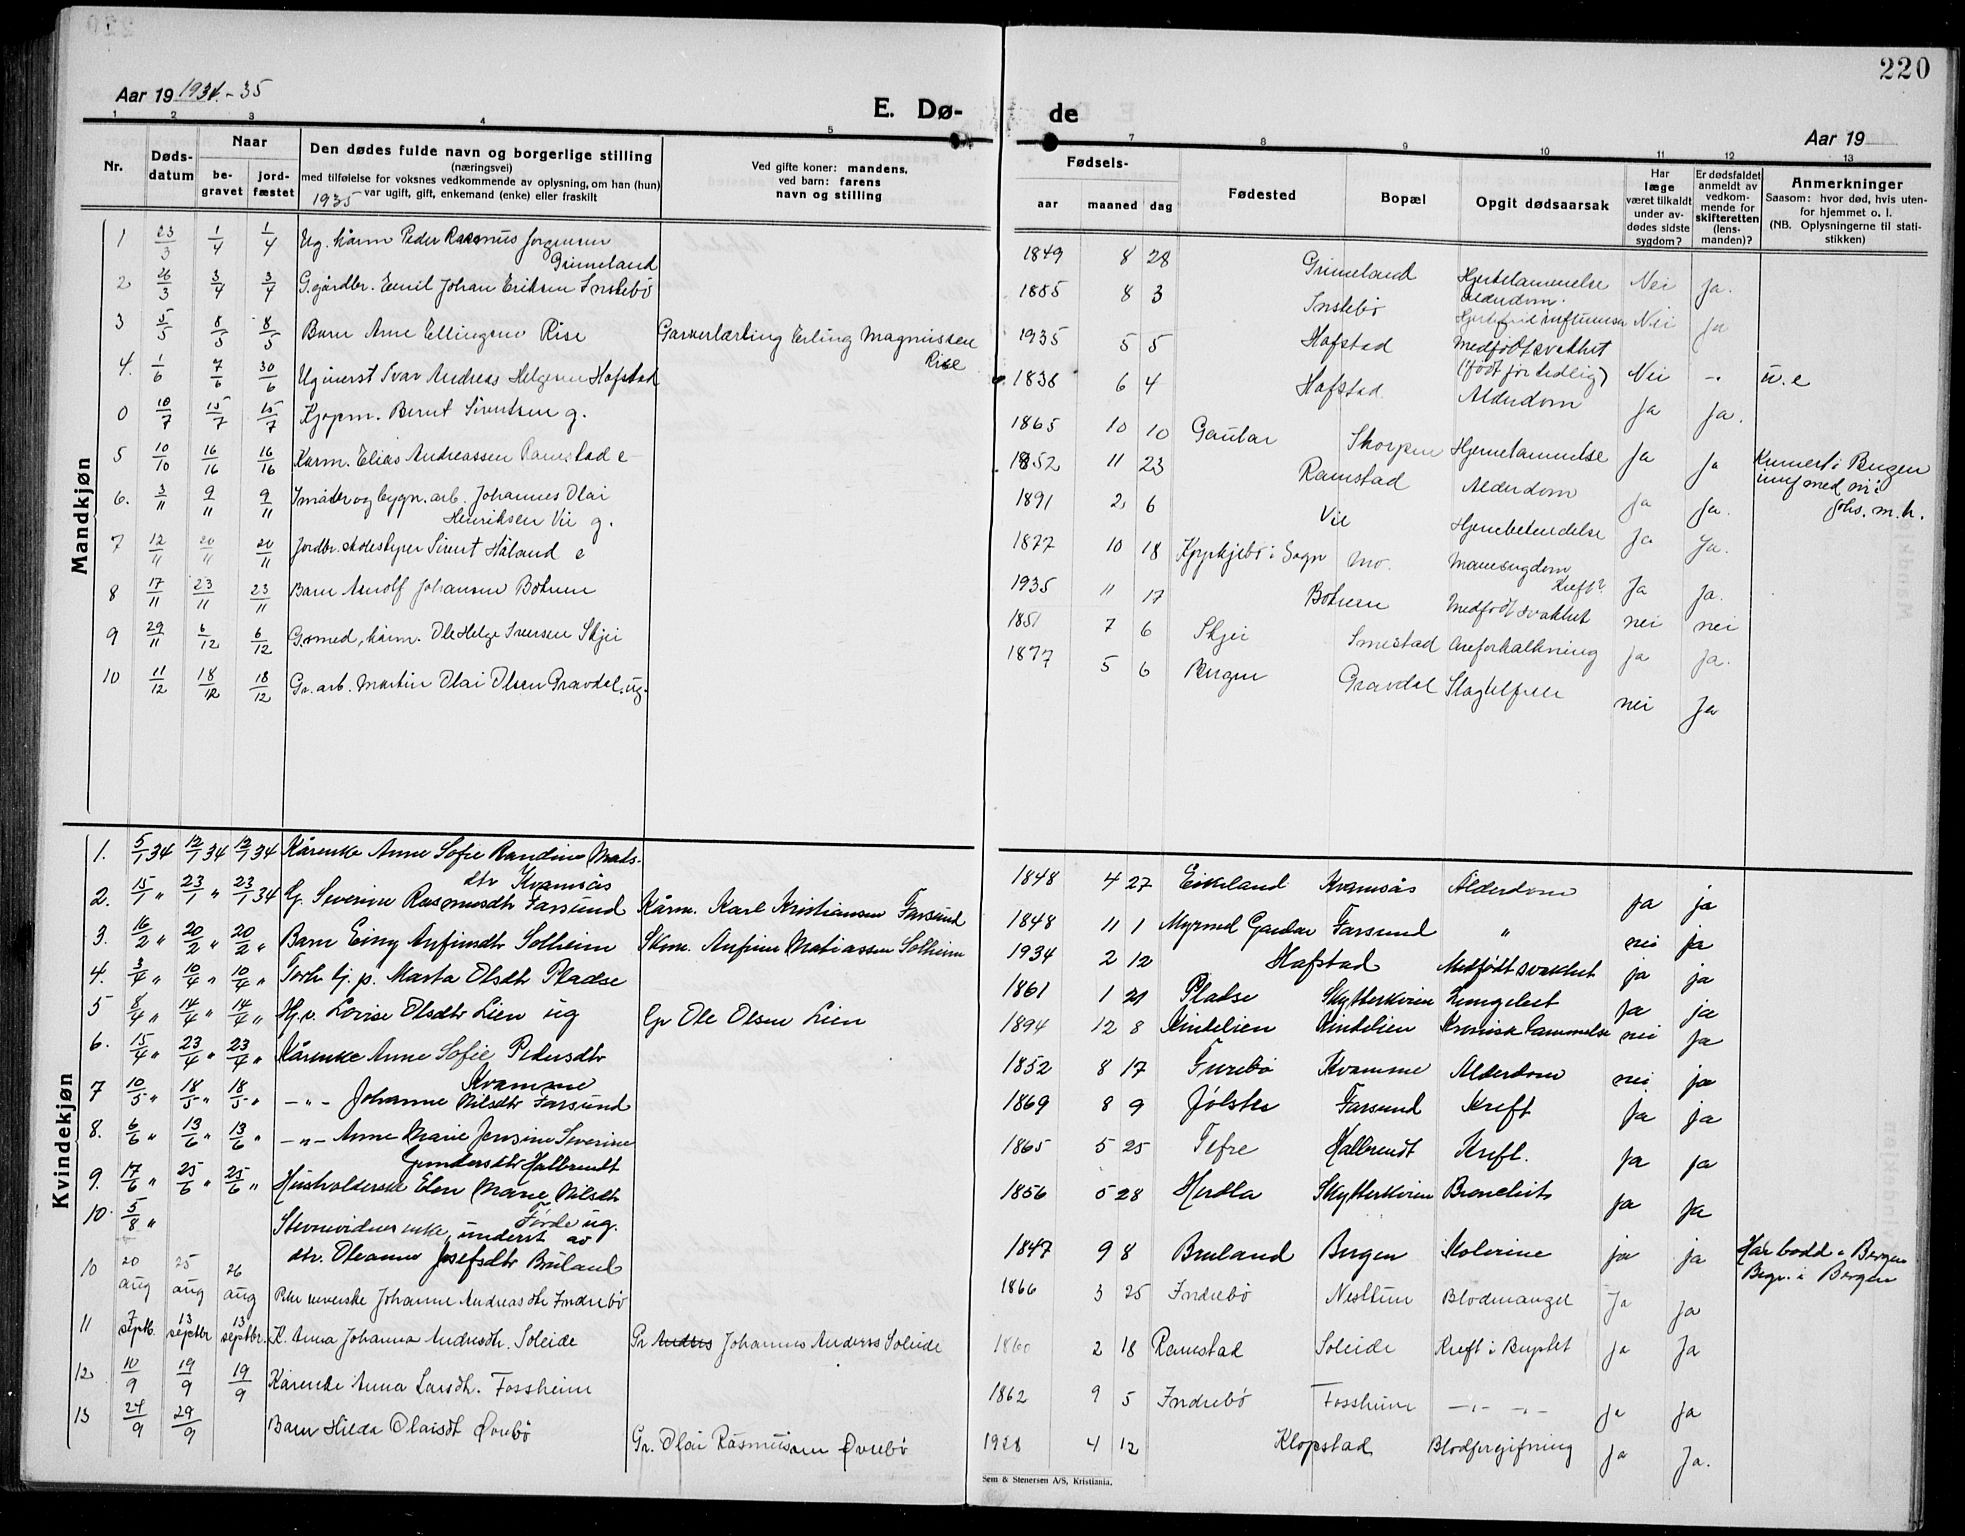 220
Aar 19 1934-35
E. Dø-
de
Aar 19
1 2 3 4 5 7 8 9 10 11 12 13
Nr.
Døds-
datum
Naar
be-
gravet
jord-
fæstet
Den dødes fulde navn og borgerlige stilling
(næringsvei)
med tilføielse for voksnes vedkommende av oplysning, om han (hun)
1935 var ugift, gift, enkemand (enke) eller fraskilt
Ved gifte koner: mandens,
ved barn: farens
navn og stilling
Fødsels-
aar maaned dag
Fødested
Bopæl
Opgit dødsaarsak
Har
læge
været tilkaldt
under av-
dødes sidste
sygdom?
Er dødsfaldet
anmeldt av
vedkom-
mende for
skifteretten
(lens-
manden)?
Anmerkninger
Saasom: hvor død, hvis uten-
for hjemmet o. l.
(NB. Oplysningerne til stati-
stikken)
Mandkjøn
1 23/3 1/4 1/4 Ug. kårm Peder Rasmus Jorgensen
Grimeland 1849 8 28 Grimeland Hjertelammelse
Alderdom. Nei Ja.
2 26/3 3/4 3/4 G. gårdbr. Emil Johan Eriksen Instebö 1885 8 3 Instebö Nei Ja
3 5/5 8/5 8/5 Barn Arne Ellingsen Rise Garverlærling Erling Magnussen
Rise 1935 5 5 Hafstad Medfödt svakhet
(född för tidlig) Nei -"- u.e
4. 1/6 7/6 30/6 Ug inerst Ivar Andreas Helgesen Hafstad 1838 6 4 Hafstad Alderdom Ja Ja.
0 10/7 15/7 15/7 Kjøpm. Bernt Sivertsen g. 1865 10 10 Gaular Skorpen Hjernelammelse Ja Ja
5 10/10 16/16 16/16 Karm. Elias Andreassen Ramstad e 1852 11 23 Ramstad Alderdom Ja Ja.
6. 3/11 9/11 9/11 Småbr og bygn. arb. Johannes Olai
Henriksen Vie g. 1891 2 6 Vie Hjernebetendelse Ja Ja.
7 12/11 20/11 20/11 Jordbr. skolestyrer Sivert Håland e 1877 10 18 Kyrkjebö i Sogn Mo. Mavesygdom
Kreft? Ja Ja.
8 17/11 23/11 23/11 Barn Arnolf Johansen Botnen 1935 11 17 Botnen Medfödt svakhet nei nei
9 29/11 6/12 6/12 G. smed, kårm. Ole Helge Iversen Skjei 1851 7 6 Skjei Smestad Areforkalkning ja Ja.
10 11/12 18/12 18/12 Gr. arb. Martin Olai Olsen Gravdal. ug. 1877 5 6 Bergen Gravdal Slagtilfelle nei Ja
Kvindekjøn
1. 5/1 34 12/1 34 12/1 34 Kårenke Anne Sofie Randine Mats-
dtr Kvamsås 1848 4 27 Eikeland Kvamsås Alderdom ja ja
2. 15/1 " 23/1 " 23/1 34 G. Severine Rasmusdtr Farsund Kårm. Karl Kristiansen Farsund 1848 11 1 Myrmel Gaular Farsund " nei ja
3. 16/2 " 20/2 " 20/2 " Barn Einy Anfinsdtr Solheim Skom. Anfinn Matiassen Solheim 1934 2 12 Hafstad Medfödt svakhet ja ja
4. 3/4 " 10/4 " 10/4 " Forh. tj. p. Marta Olsdtr Pladse 1861 1 21 Pladse Skytterkvien Lungebet ja ja
5 8/4 " 14/4 " 14/4 " Hj. v. Lovise Olsdtr Lien ug Gp Ole Olsen Lien 1894 12 8 Kindelien Kindelien Kronisk lammelse nei ja
6. 15/4 " 23/4 " 23/4 " Kårenke Anne Sofie Pedersdtr
Kvamme 1852 8 17 Furebö Kvamme Alderdom nei ja
7 10/5 " 18/5 " 18/5 " -"- Johanne Nilsdtr Farsund 1869 8 9 Jølster Farsund Kreft Ja ja
8. 6/6 " 13/6 " 13/6 " -"- Anne Marie Jensine Severine
Gundersdtr Halbrendt 1865 5 25 Tefre Halbrendt Kreft. ja ja
9. 17/6 " 25/6 " 25/6 " Husholderske Elen Marie Nilsdtr
Førde ug. 1856 5 28 Herdla Skytterkvien Bronchit ja ja
10. 5/8 " Stevnevidnes enke, underst. av
dtr. Oleanna Josefsdtr Bruland 1847 9 8 Bruland Bergen Kolerine ja ja Har bodd i Bergen
Begr. i Bergen
10 20 aug 25 aug 26 aug Johanne Andreasdtr Indrebö 1866 3 25 Indrebö Nesttun Blodmangel Ja Ja
11 7 septb. 13 septbr 13 septbr. K. Anna Johanna Andersdtr. Soleide Gr Anders Johannes Anders Soleide 1860 2 18 Ramstad Soleide Kreft i Brystet ja Ja
12 10/9 19/9 19/9 Kårenke Anna Larsdtr. Fossheim 1862 9 5 Indrebö Fossheim -"- -"- ja Ja
13 24/9 29/9 Barn Hilda Olaisdtr Øvrebö Gr. Olai Rasmussen Øvrebö 1928 4 12 Klopstad Blodforgifning Ja Ja.
Sem & Stenersen A/S, Kristiania.